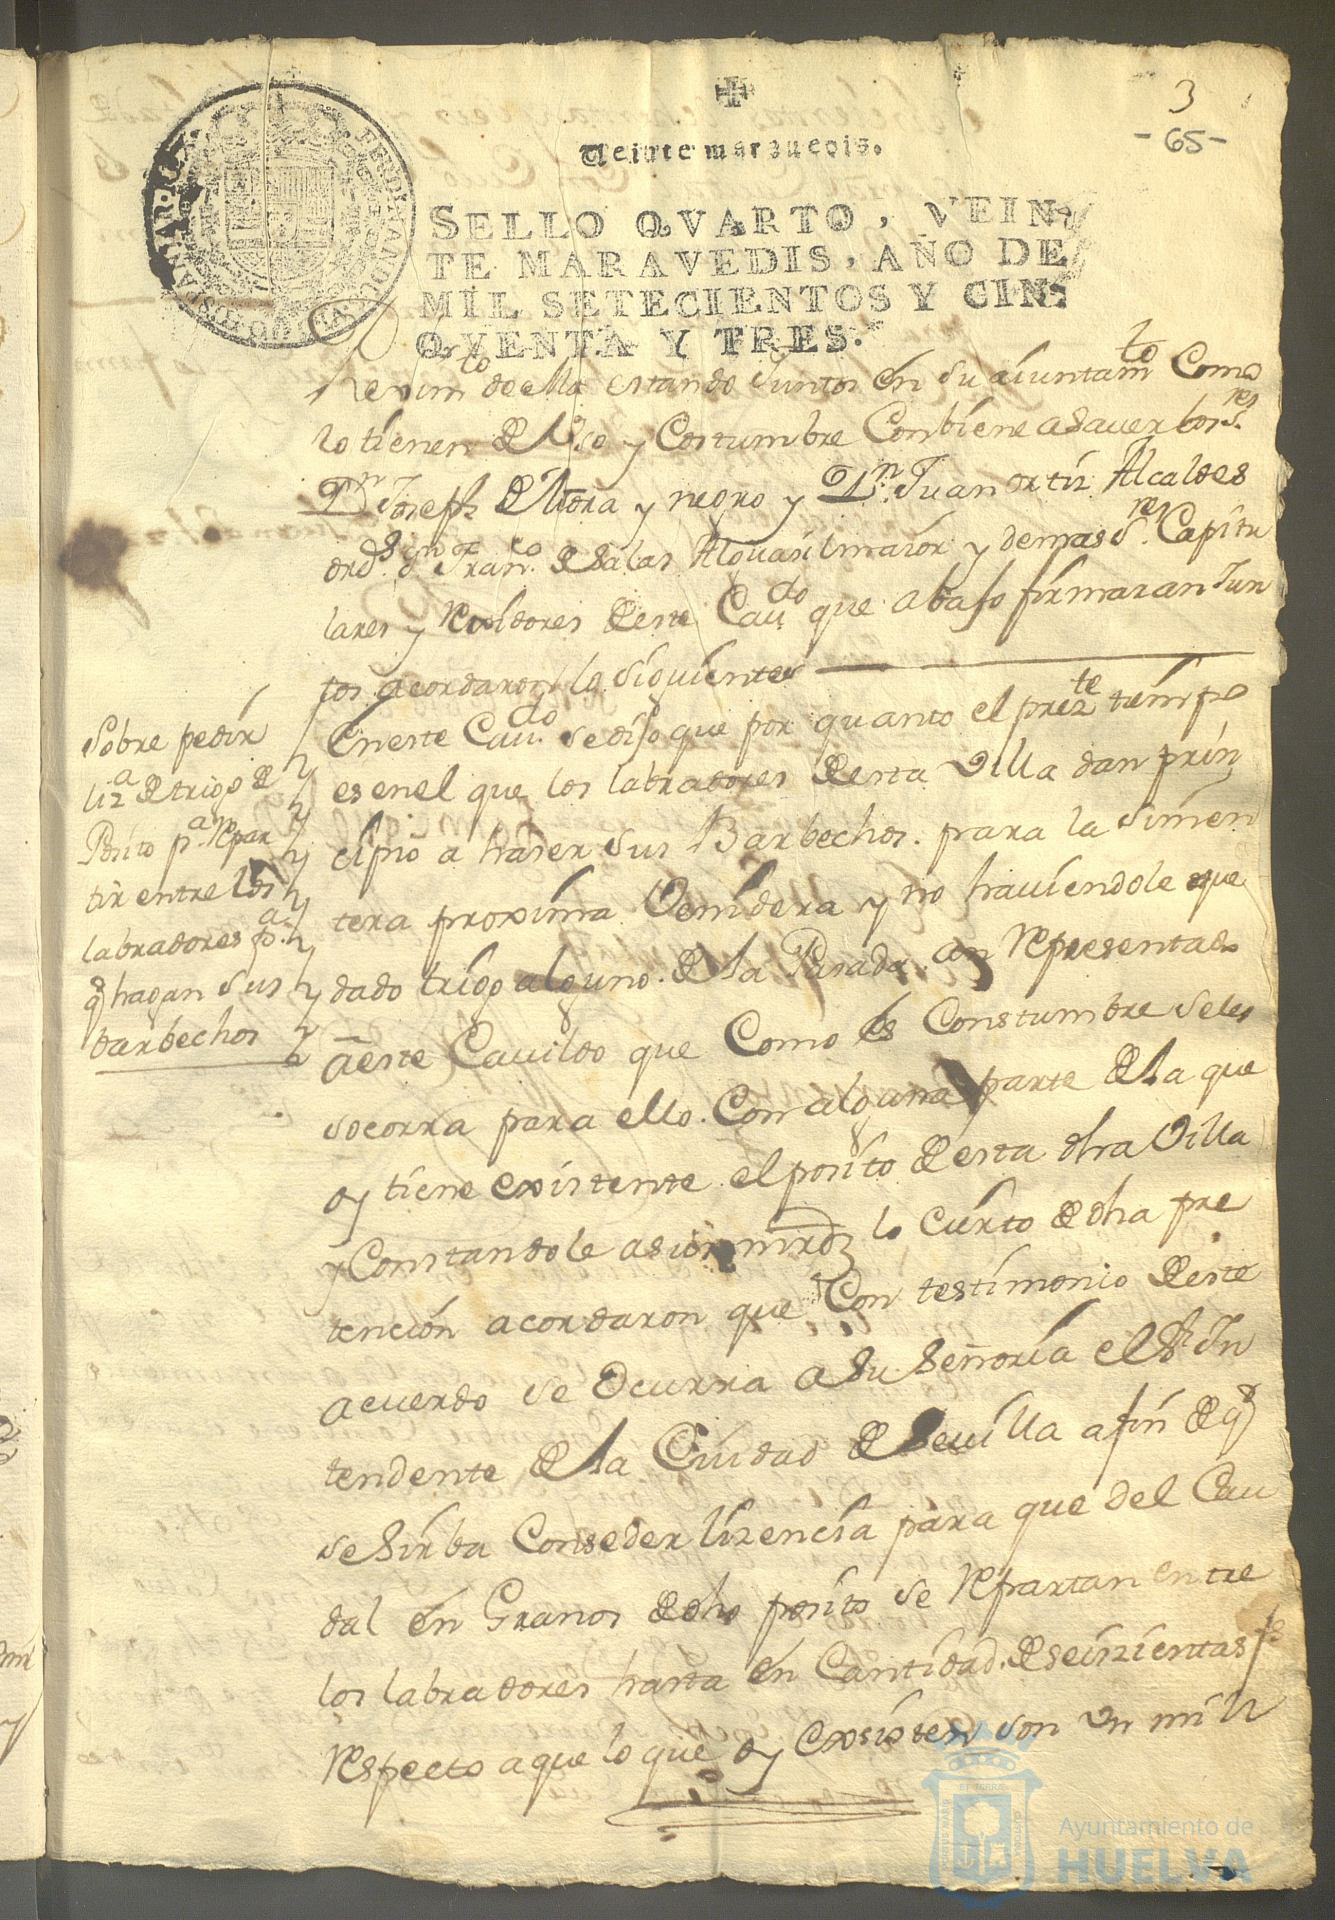 3
-65-
Veinte marauedis.
SELLO QVARTO, VEIN-
TE MARAVEDIS, AÑO DE
MIL SETECIENTOS Y CIN-
QVENTA Y TRES.
Reximto de ella estando Juntos en su aiuntamto Como
lo tienen de Uso y Costumbre Conbiene asauer los Sres
Dn Joseph de Mora y negro y Dn Juan ortiz Alcaldes
ordS Franco de Salas Alguasilmaior y demas Sres Capitu
lares y Rexidores de este Caudo que abajo firmaran Jun
tos acordaron lo siguiente
Sobre pedir
liza de trigo de
Posito pa Repar
tir entre los
labradores pa
q hagan sus
barbechos
En este Caudo se dijo que por quanto el prezte tiempo
es en el que los labradores de esta Villa dan prin
cipio a haser sus Barbechos. para la simen
tera proxima Venidera y no hauiendole que
dado trigo alguno. de la Pasada. an Representado
a este Cauildo que Como es Constumbre seles
socorra para ello. Con alguna parte de la que
oy tiene existente el posito de esta dha Villa
y Constandole a sus mrds lo cierto de dha pre
tencion acordaron que Con testimonio de este
acuerdo se Ocurra a Su Señoria el Sr In
tendente de la Ciudad de Seuilla a fin de q
se Sirba Conseder lizencia para que del Cau
dal en Granos de dho posito se Repartan entre
los labradores hasta en Cantidad. de seizientas fs
Respecto a que lo que oy Exsisten son Un mill
Ayuntamiento de
HUELVA